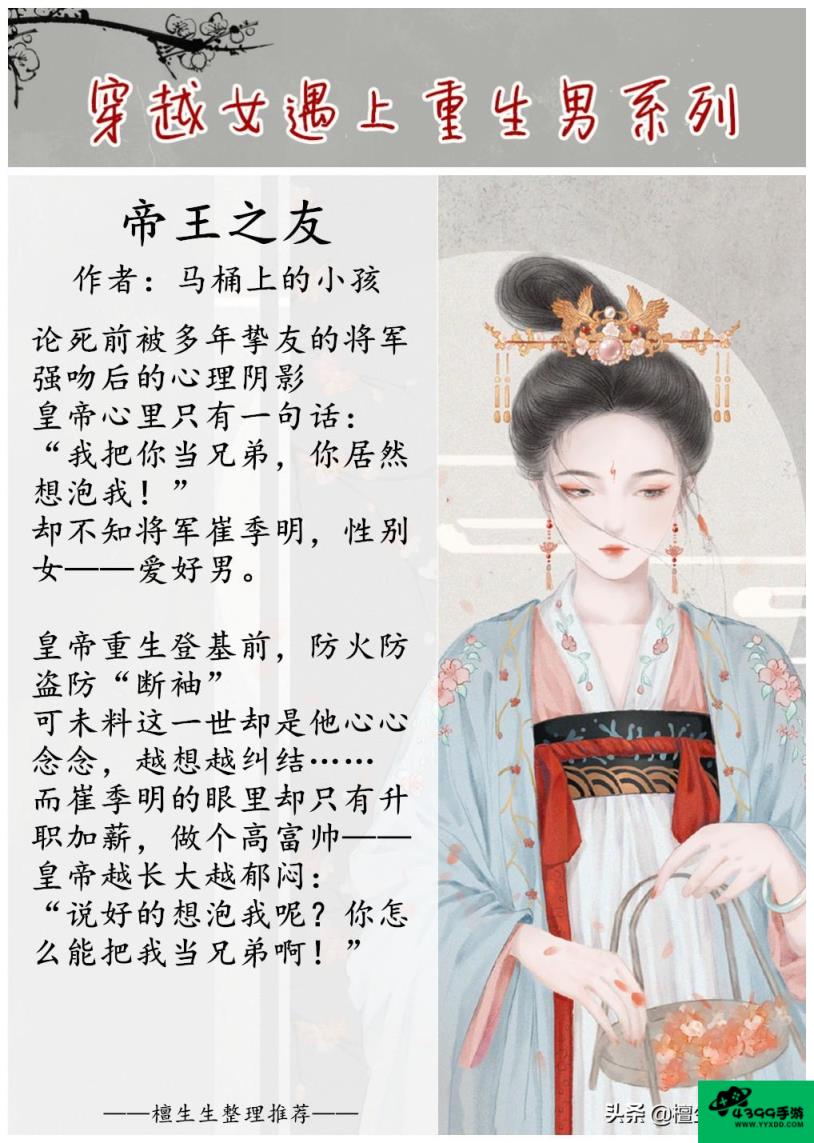 穿越女遇上重生男系列
帝王之友
作者：马桶上的小孩
论死前被多年挚友的将军
强吻后的心理阴影
皇帝心里只有一句话：
“我把你当兄弟，你居然
想泡我！”
却不知将军崔季明，性别
女——爱好男。
皇帝重生登基前，防火防
盗防“断袖”
可未料这一世却是他心心
念念，越想越纠结……
而崔季明的眼里却只有升
职加薪，做个高富帅——
皇帝越长大越郁闷：
“说好的想泡我呢？你怎
么能把我当兄弟啊！”
——檀生生整理推荐——
头条 @檀生
4399手游
WWW.YYXDD.COM